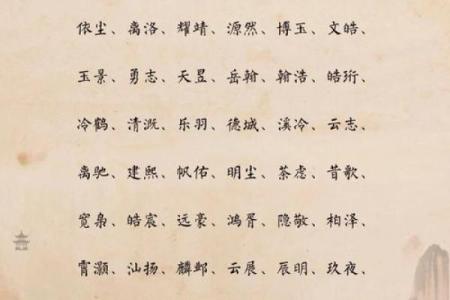 依尘、离洛、耀靖、源然、博玉、文皓、
玉景、勇志、天昱、岳翰、翰浩、皓珩、
冷鹤、清溉、乐羽、德城、溪冷、云志、
离驰、建熙、帆佑、明尘、荼虑、昔歌、
宽枭、皓宸、远豪、鸿胥、隐敬、柏泽、
霄灏、汕扬、麟邺、云展、辰明、玖夜、